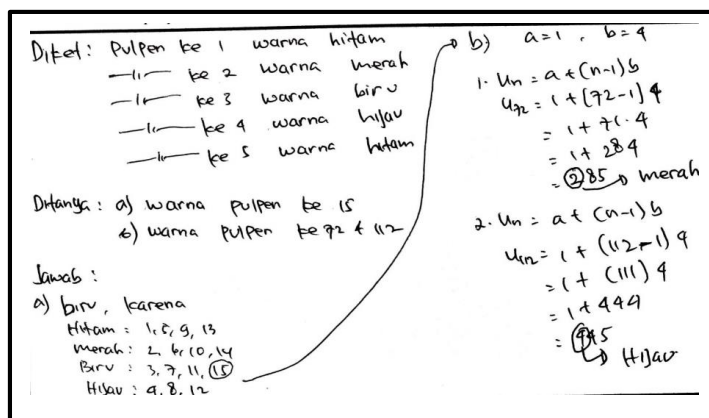 Diket: Pulpen ke 1 warna hitam
—〃— ke 2 warna merah
—〃— ke 3 warna biru
—〃— ke 4 warna hijau
—〃— ke 5 warna hitam
Ditanya: a) warna pulpen ke 15
b) warna pulpen ke 72 & 112
Jawab:
a) biru, karena
Hitam: 1, 5, 9, 13
Merah: 2, 6, 10, 14
Biru: 3, 7, 11, 15
Hijau: 4, 8, 12
b) a=1, b=4
1. Un = a+(n-1)b
U72 = 1+(72-1)4
= 1+71.4
= 1+284
= 285 → merah
2. Un = a+(n-1)b
U112 = 1+(112-1)4
= 1+(111)4
= 1+444
= 445
→ Hijau